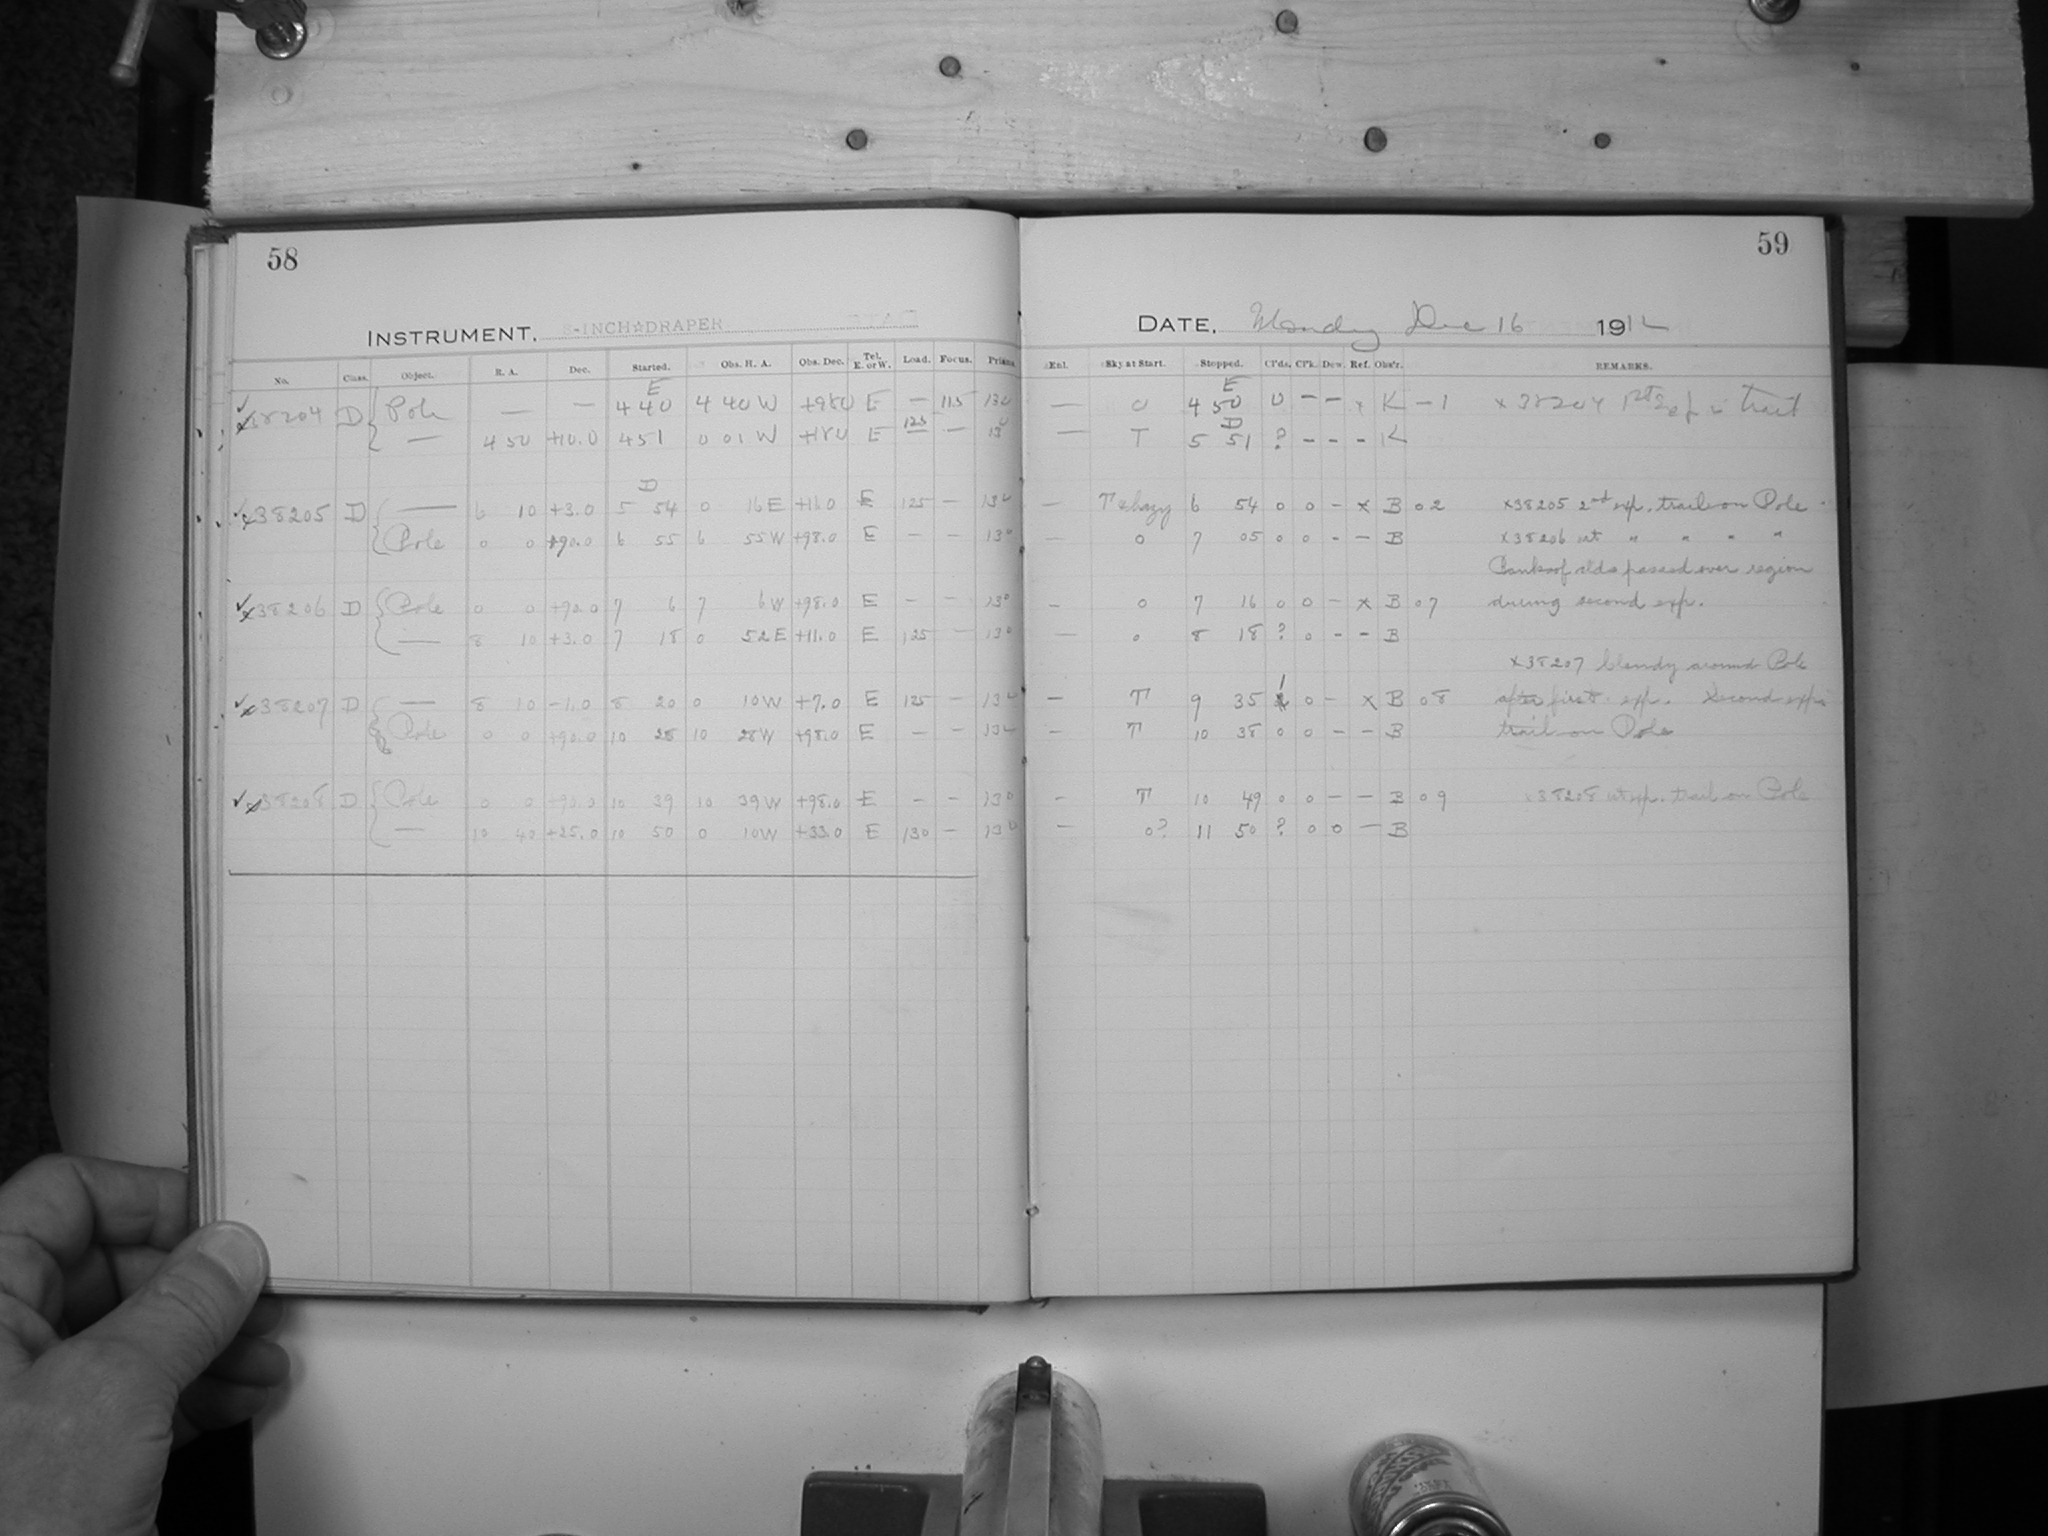 58
59
INSTRUMENT. 8-INCH☆DRAPER
DATE. Monday Dec 16 1912
No. Class. Object. R. A. Dec. Started. Obs. H. A. Obs. Dec. Tel. E. or W. Load. Focus. Prism.
Enl. Sky at Start. Stopped. Cl'ds. Cl'k. Dew. Ref. Obs'r. REMARKS.
E
E
✓ x38204 D { Pole — — 4 40 4 40 W +98.0 E — 11.5 130 — 0 4 50 0 — — x K -1 x 38204 1st trail
D
— 4 50 +10.0 4 51 0 01 W +18.0 E 125 — 130 — T 5 51 ? - - - K
D
✓ x38205 D { — 6 10 +3.0 5 54 0 16 E +11.0 E 125 - 130 — T & hazy 6 54 0 0 - x B 02 x38205 2nd exp. trail on Pole
Pole 0 0 +90.0 6 55 6 55 W +98.0 E - - 130 — 0 7 05 0 0 - - B x38206 1st " " " "
Banks of clds passed over region
✓ x38206 D { Pole 0 0 +90.0 7 6 7 6 W +98.0 E - - 130 - 0 7 16 0 0 - x B 07 during second exp.
— 8 10 +3.0 7 18 0 52 E +11.0 E 125 - 130 — 0 8 18 ? 0 - - B
x38207 cloudy around Pole
✓ x38207 D { — 8 10 -1.0 8 20 0 10 W +7.0 E 125 - 130 - T 9 35 1 0 - x B 08 after first exp. Second exp.
Pole 0 0 +90.0 10 28 10 28 W +98.0 E - - 130 - T 10 38 0 0 - - B trail on Pole
✓ x38208 D { Pole 0 0 +90.0 10 39 10 39 W +98.0 E - - 130 - T 10 49 0 0 - - B 09 x38208 1st exp. trail on Pole
— 10 40 +25.0 10 50 0 10 W +33.0 E 130 - 130 — 0? 11 50 ? 0 0 - B